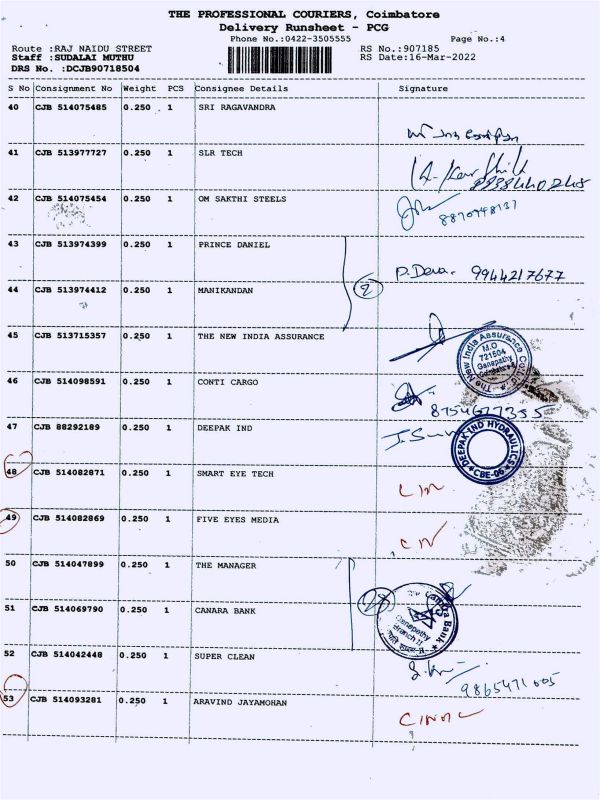 THE PROFESSIONAL COURIERS, Coimbatore
Delivery Runsheet - PCG
Phone No.:0422-3505555 Page No.:4
Route :RAJ NAIDU STREET RS No.:907185
Staff :SUDALAI MUTHU RS Date:16-Mar-2022
DRS No. :DCJB90718504
S No Consignment No Weight PCS Consignee Details Signature
40 CJB 514075485 0.250 1 SRI RAGAVANDRA
41 CJB 513977727 0.250 1 SLR TECH
42 CJB 514075454 0.250 1 OM SAKTHI STEELS
43 CJB 513974399 0.250 1 PRINCE DANIEL
P. Deva. 9944217677
44 CJB 513974412 0.250 1 MANIKANDAN
2
45 CJB 513715357 0.250 1 THE NEW INDIA ASSURANCE
The New India Assurance Co. Ltd.
M.O
721604
Ganapathy
46 CJB 514098591 0.250 1 CONTI CARGO
8754677355
47 CJB 88292189 0.250 1 DEEPAK IND
DEEPAK IND HYDRAULICS
CBE-06
48 CJB 514082871 0.250 1 SMART EYE TECH
49 CJB 514082869 0.250 1 FIVE EYES MEDIA
50 CJB 514047899 0.250 1 THE MANAGER
51 CJB 514069790 0.250 1 CANARA BANK
Canara Bank
Ganapathy
Branch
52 CJB 514042448 0.250 1 SUPER CLEAN
9865471005
53 CJB 514093281 0.250 1 ARAVIND JAYAMOHAN